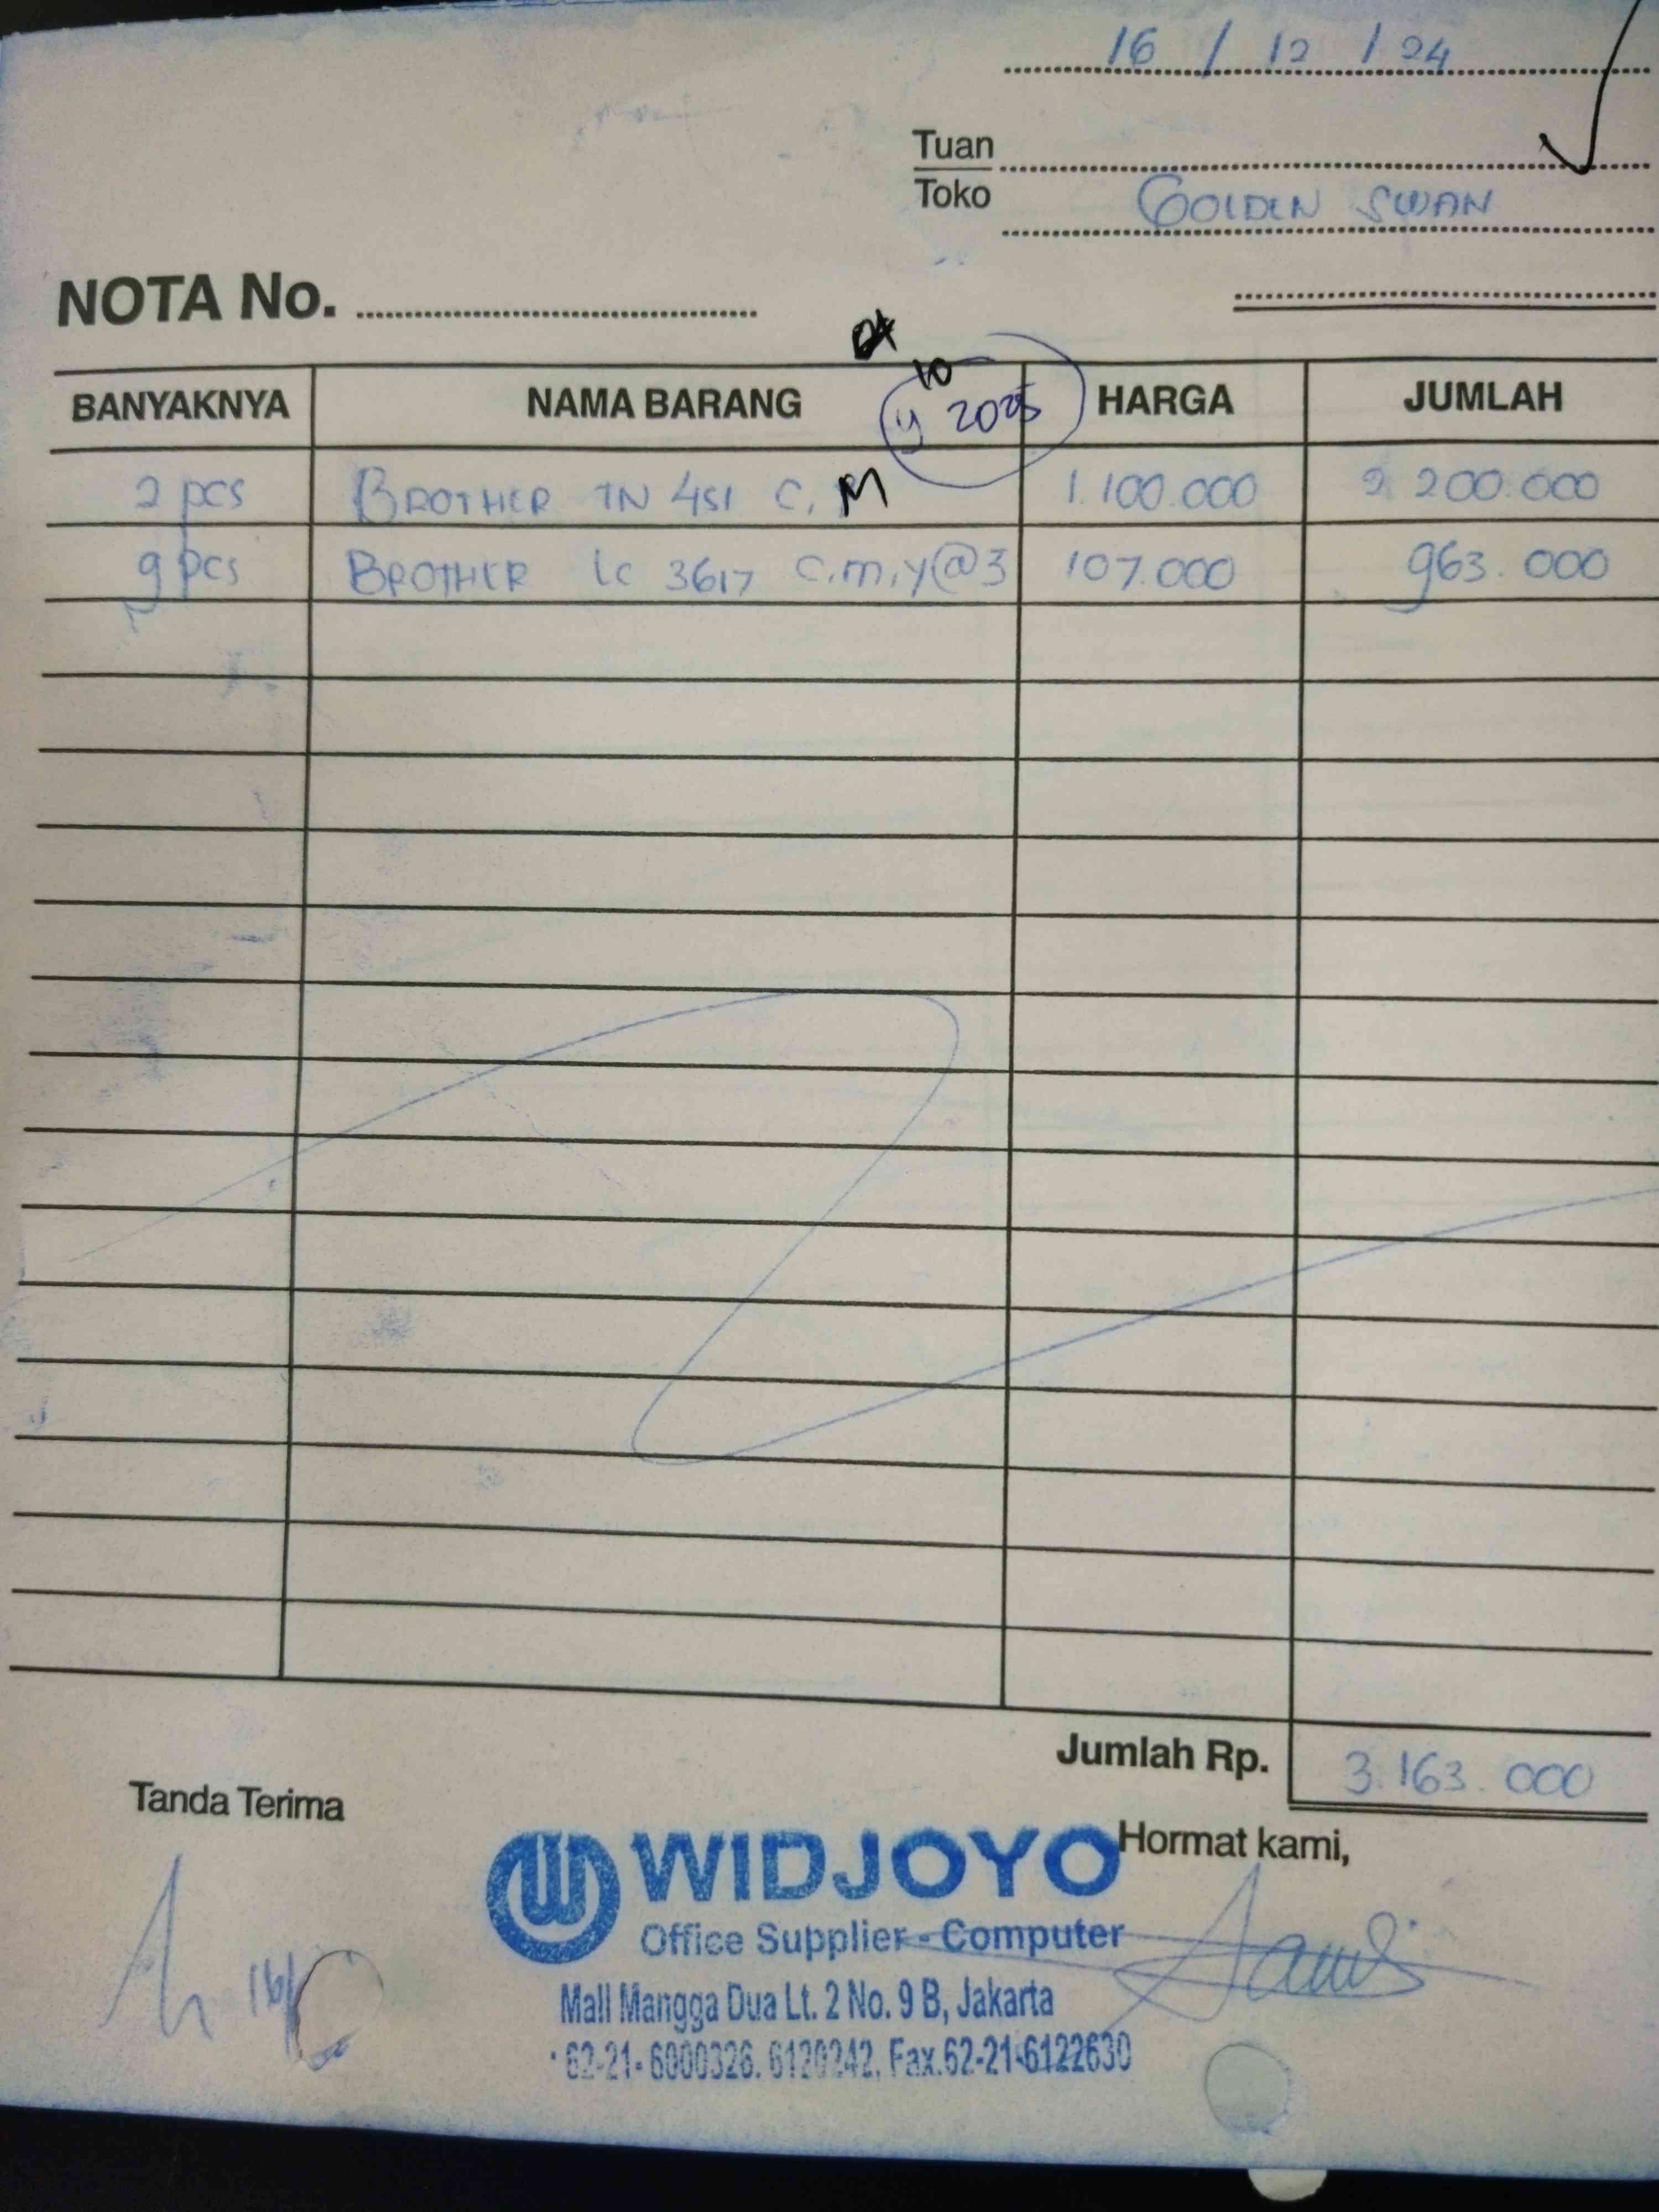 16 / 12 / 24
Tuan
Toko GOLDEN SWAN
NOTA No.
10
BANYAKNYA NAMA BARANG y 2025 HARGA JUMLAH
2 pcs BROTHER TN 451 C, M 1.100.000 2.200.000
9 pcs BROTHER LC 3617 C.m.y@3 107.000 963.000
Jumlah Rp. 3.163.000
Tanda Terima Hormat kami,
WIDJOYO
Office Supplier - Computer
Mall Mangga Dua Lt. 2 No. 9 B, Jakarta
62-21- 6000326. 6120242, Fax.62-21-6122630